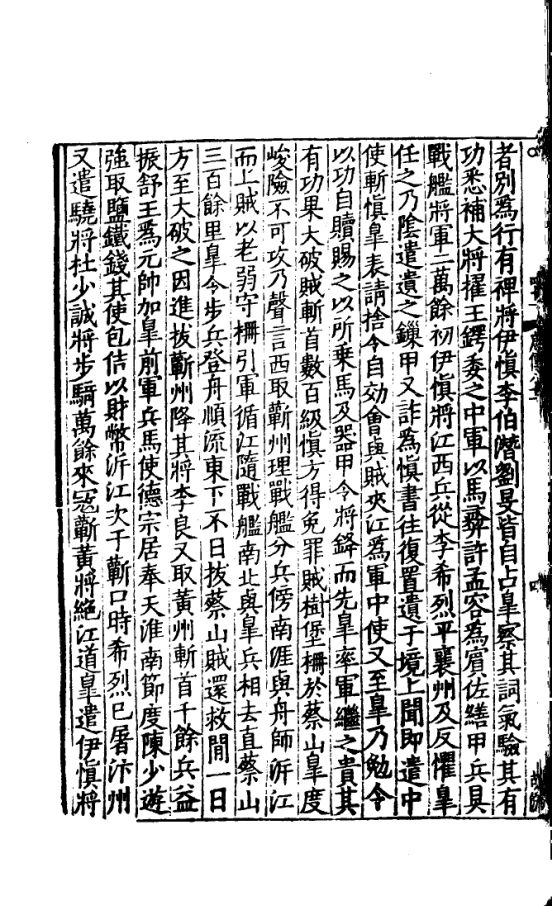 者別爲行有裨將伊愼李伯潛劉旻皆自占皐察其詞氣驗其有
功悉補大將擢王鍔委之中軍以馬彝許孟容爲賓佐繕甲兵具
戰艦將軍二萬餘初伊愼將江西兵從李希烈平襄州及反懼皐
任之乃陰遣遺之鏁甲又詐爲愼書往復置遺于境上聞即遣中
使斬愼皐表請捨令自効會與賊夾江爲軍中使又至皐乃勉令
以功自贖賜之以所乗馬及器甲令將鋒而先皐率軍繼之責其
有功果大破賊斬首數百級愼方得免罪賊樹堡柵於蔡山皐度
峻險不可攻乃聲言西取蘄州理戰艦分兵傍南涯與舟師沂江
而上賊以老弱守柵引軍循江隨戰艦南北與皐兵相去直蔡山
三百餘里皐令步兵登舟順流東下不日拔蔡山賊還救間一日
方至大破之因進拔蘄州降其將李良又取黃州斬首千餘兵益
振舒王爲元帥加皐前軍兵馬使德宗居奉天淮南節度陳少遊
強取鹽鐵錢其使包佶以財幣沂江次于蘄口時希烈已屠汴州
又遣驍將杜少誠將步騎萬餘來寇蘄黃將絕江道皐遣伊愼將